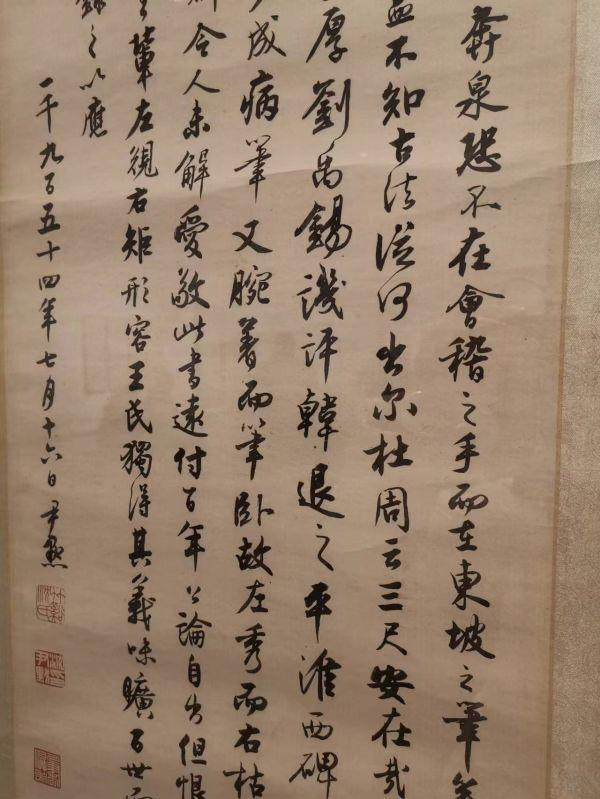 奔泉恐不在會稽之手而在東坡之筆
盖不知古法從何出尔杜周云三尺安在哉
厚劉禹錫譏評韓退之平淮西碑
成病筆又腕著而筆卧故左秀而右枯
今人未解愛敬此書遠付百年公論自出但恨
輩左規右矩形容王氏獨得其義味曠百世而
錄之以應
一千九百五十四年七月十六日尹默